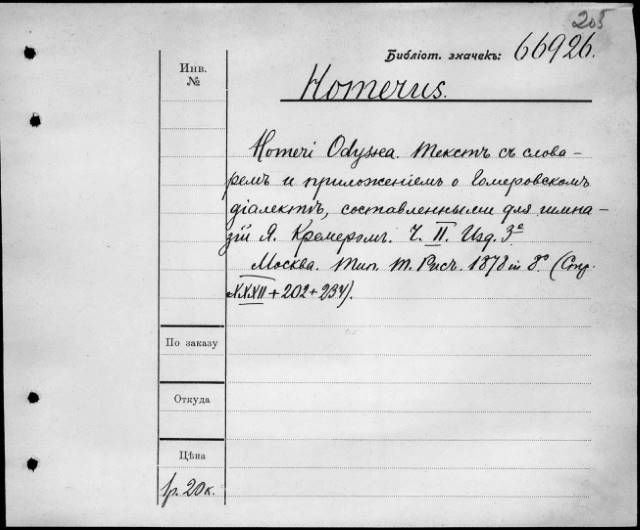 205
Библіот. значекъ: 66926.
Инв.
№
Homerus.
Homeri Odyssea. Текстъ съ слова-
ремъ и приложеніемъ о Гомеровскомъ
діалектѣ, составленными для гимна-
зій Я. Кремеромъ. Ч. II. Изд. 3е
Москва. Тип. Т. Рисъ. 1878 in 8º (Стр.
XXXII + 202 + 234).
По заказу
Откуда
Цѣна
1р. 20 к.